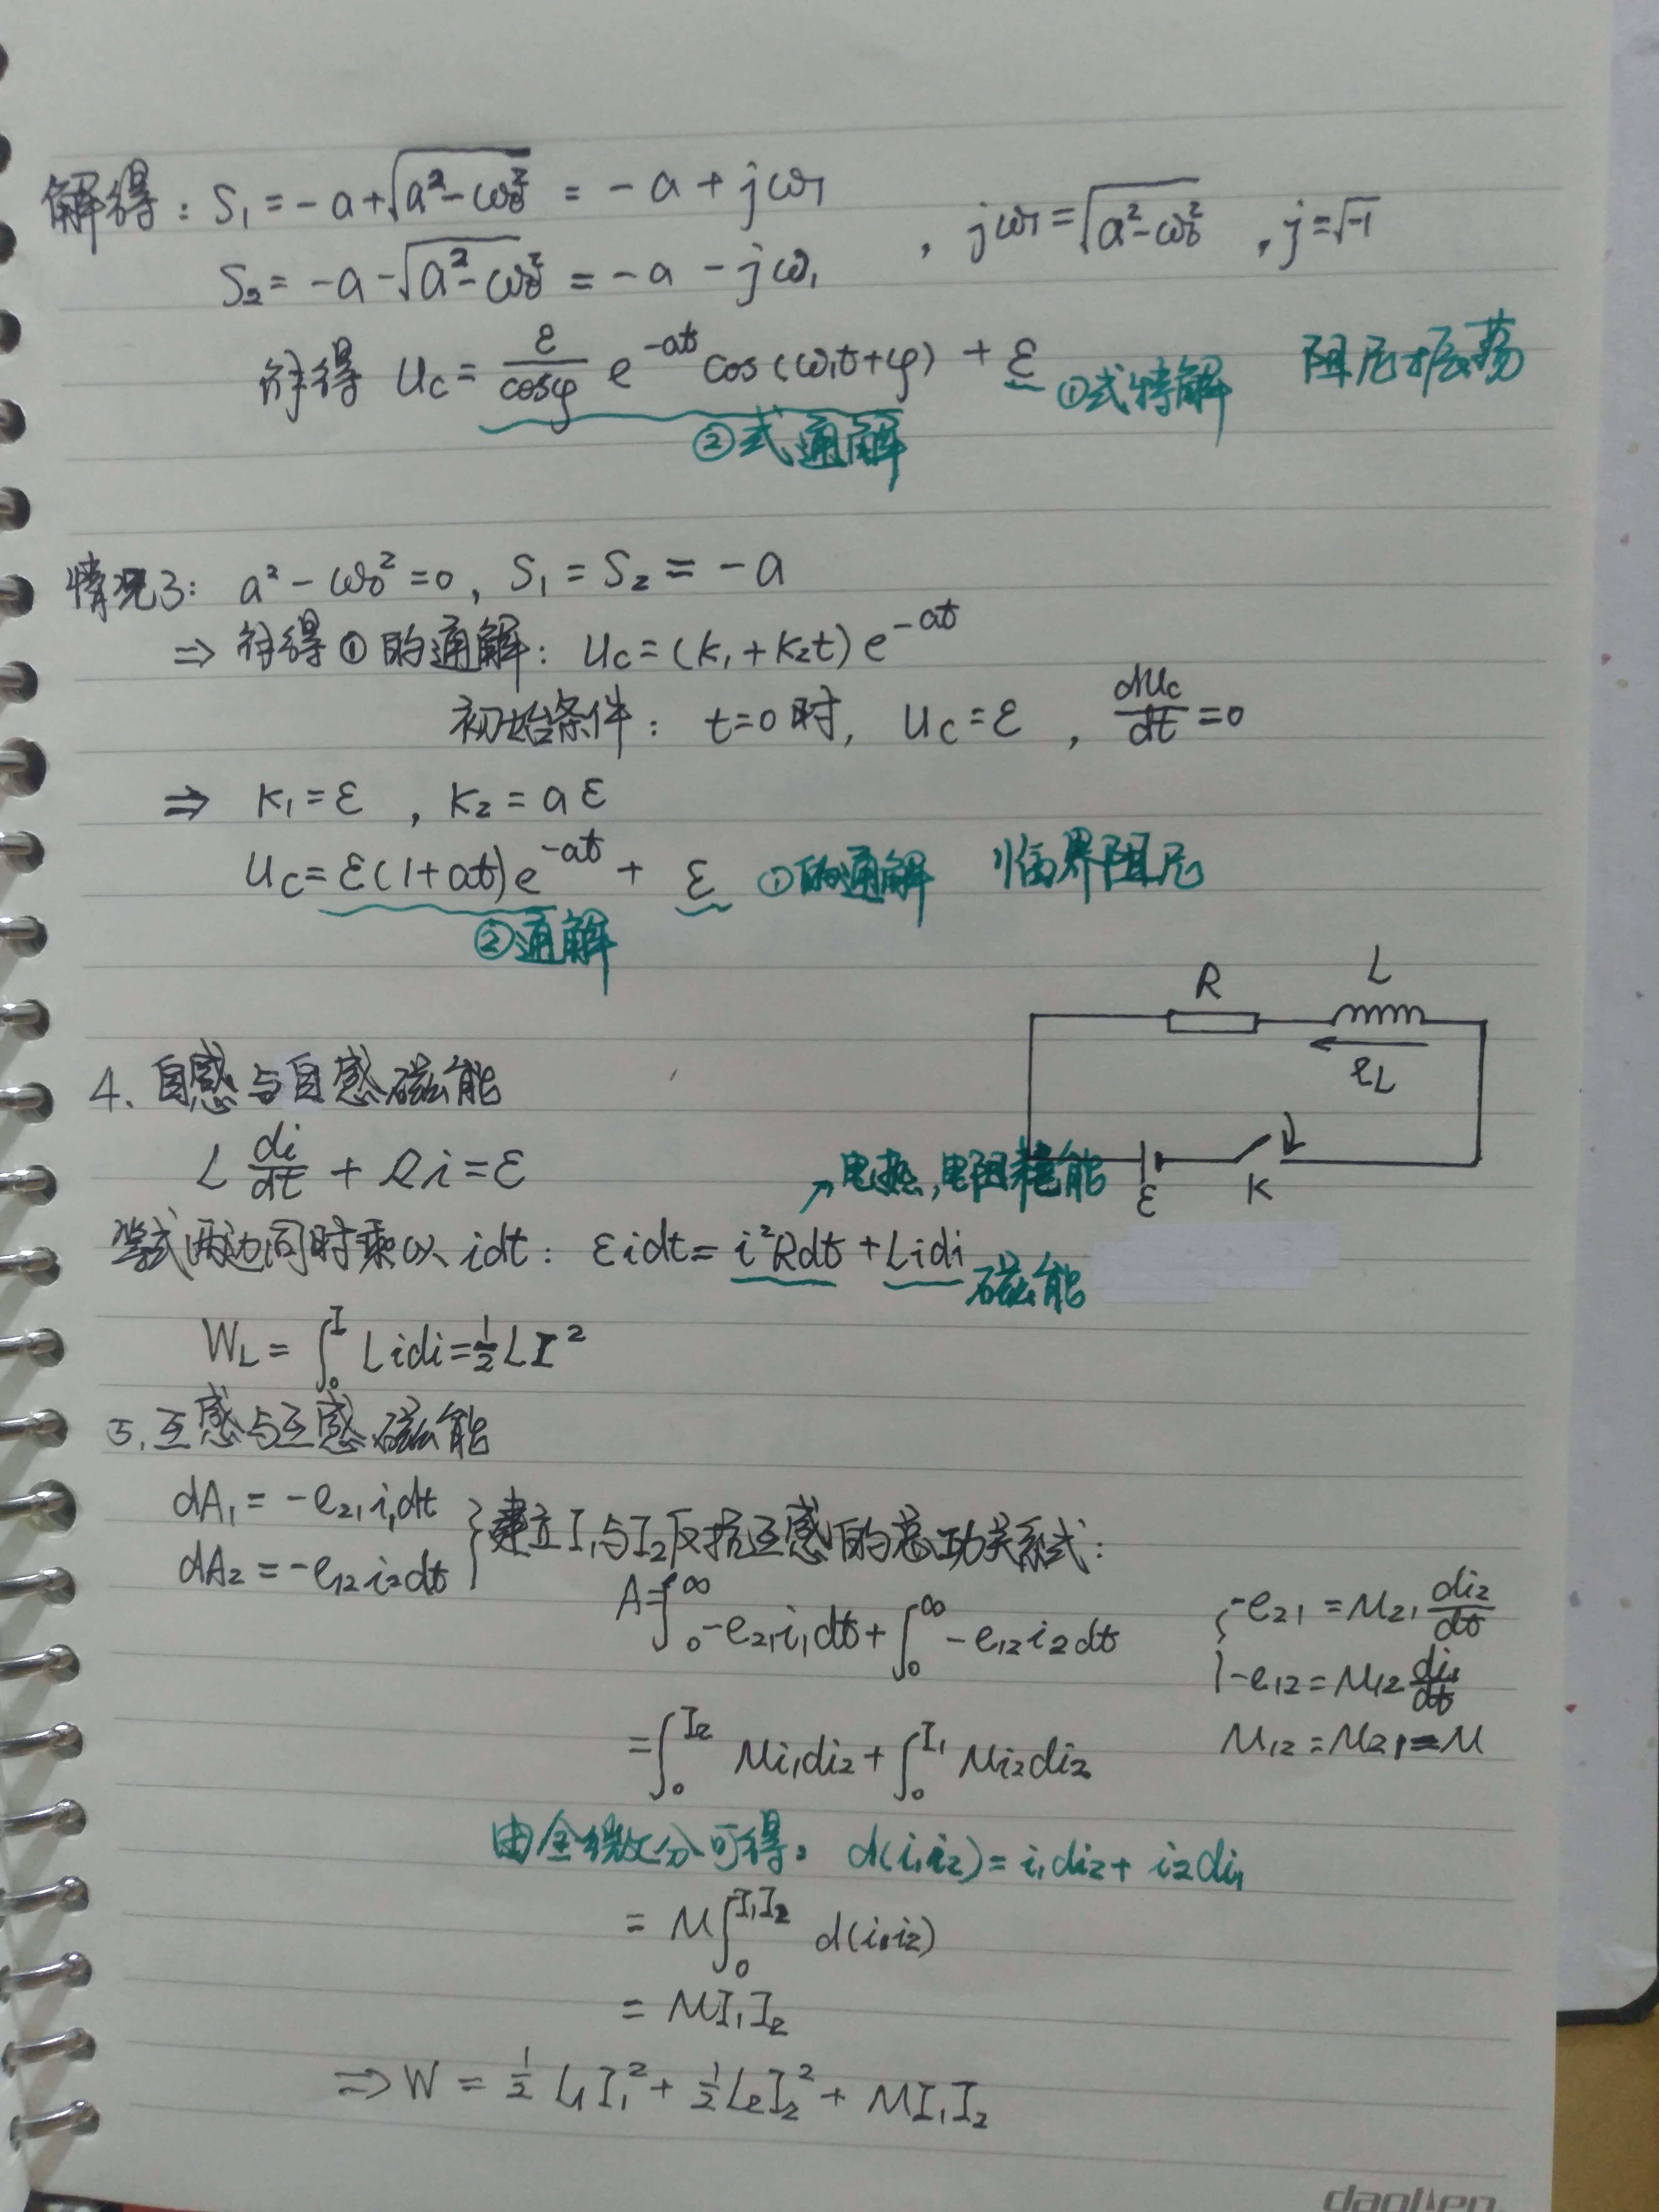 解得: S₁ = -a+√(a²-ω₀²) = -a + jω₁
S₂ = -a-√(a²-ω₀²) = -a - jω₁ , jω₁=√(a²-ω₀²) , j=√-1
解得 u_C = ε/cosφ e^(-at) cos(ω₁t+φ) + ε ①式特解 阻尼振荡
②式通解
情况3: a²-ω₀²=0, S₁ = S₂ = -a
⇒ 符得①的通解: u_C=(k₁+k₂t)e^(-at)
初始条件: t=0时, u_C=ε , du_C/dt=0
⇒ k₁=ε , k₂=aε
u_C=ε(1+at)e^(-at) + ε ①的通解 临界阻尼
②通解
R L
e_L
ε K
4. 自感与自感磁能
L di/dt + Ri=ε
↗电热,电阻耗能
等式两边同时乘以idt: εidt= i²Rdt + Lidi 磁能
W_L = ∫₀^I Lidi=½LI²
5. 互感与互感磁能
dA₁ = -e₂₁i₁dt
dA₂ = -e₁₂i₂dt } 建立I₁与I₂反抗互感的总功关系式:
A=∫₀^∞ -e₂₁i₁dt+∫₀^∞ -e₁₂i₂dt { -e₂₁=M₂₁ di₂/dt
-e₁₂=M₁₂ di₁/dt
=∫₀^I₂ Mi₁di₂+∫₀^I₁ Mi₂di₂ M₁₂=M₂₁=M
由全微分可得: d(i₁i₂)=i₁di₂+ i₂di₁
= M∫₀^I₁I₂ d(i₁i₂)
= MI₁I₂
⇒W = ½L₁I₁² + ½L₂I₂² + MI₁I₂